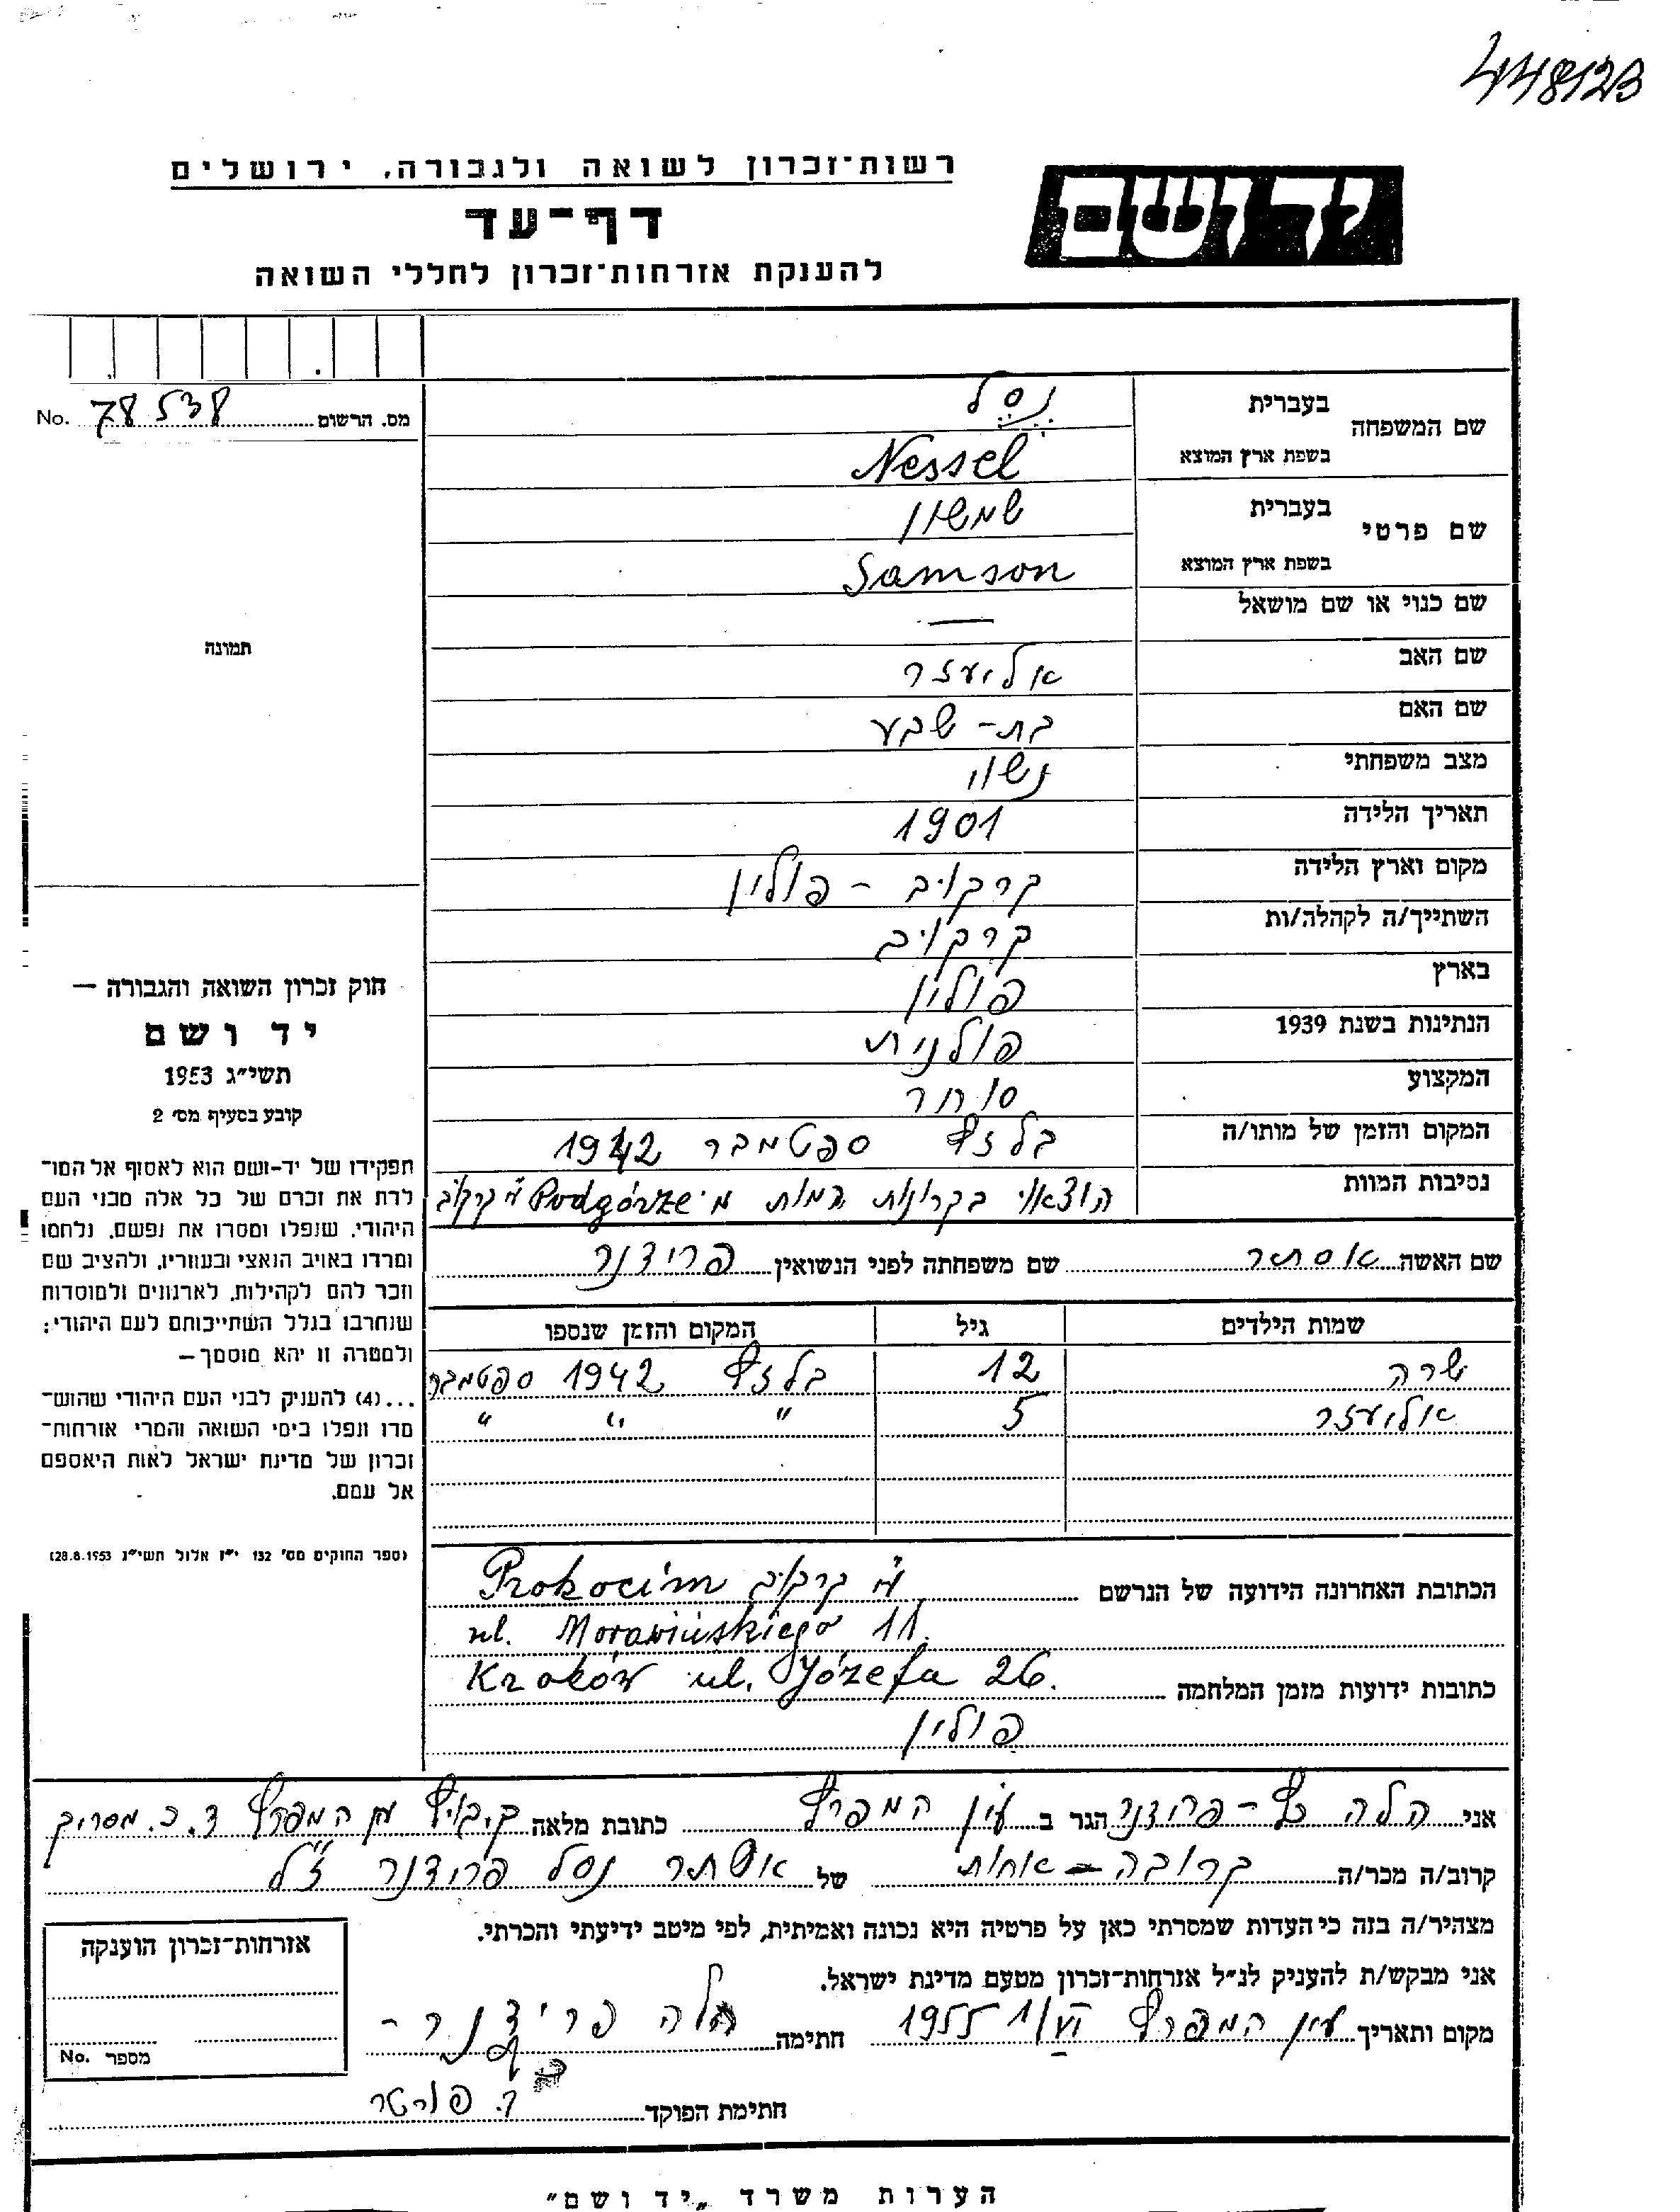 448123
רשות־זכרון לשואה ולגבורה, ירושלים
יד ושם
דף־עד
להענקת אזרחות־זכרון לחללי השואה
מס. הרשום 78538 No.
שם המשפחה בעברית נסל
בשפת ארץ המוצא Nessel
שם פרטי בעברית שמשון
בשפת ארץ המוצא Samson
שם כנוי או שם מושאל —
תמונה
שם האב אליעזר
שם האם בת-שבע
מצב משפחתי נשוי
תאריך הלידה 1901
מקום וארץ הלידה קרקוב - פולין
השתייך/ה לקהלה/ות קרקוב
בארץ פולין
הנתינות בשנת 1939 פולנית
המקצוע סוחר
המקום והזמן של מותו/ה בלזץ ספטמבר 1942
נסיבות המוות הוצאו בקרונות המות מ Podgórze ע"י קרקוב
שם האשה אסתר שם משפחתה לפני הנשואין פרידנר
שמות הילדים גיל המקום והזמן שנספו
שרה 12 בלזץ 1942 ספטמבר
אליעזר 5 " " "
חוק זכרון השואה והגבורה —
יד ושם
תשי״ג 1953
קובע בסעיף מס׳ 2
תפקידו של יד-ושם הוא לאסוף אל המו־
לדת את זכרם של כל אלה מבני העם
היהודי, שנפלו ומסרו את נפשם, נלחמו
ומרדו באויב הנאצי ובעוזריו, ולהציב שם
וזכר להם לקהילות, לארגונים ולמוסדות
שנחרבו בגלל השתייכותם לעם היהודי;
ולמטרה זו יהא מוסמך—
...(4) להעניק לבני העם היהודי שהוש־
מדו ונפלו בימי השואה והמרי אזרחות־
זכרון של מדינת ישראל לאות היאספם
אל עמם.
(ספר החוקים מס' 132 י״ז אלול תשי״ג 28.8.1953)
הכתובת האחרונה הידועה של הנרשם Prokocim ע"י קרקוב
ul. Morawiańskiego 11.
כתובות ידועות מזמן המלחמה Kraków ul. Józefa 26.
פולין
אני הלה כץ - פרידנר הגר ב עין המפרץ כתובת מלאה קיבוץ עין המפרץ ד.נ. מסריק
קרוב/ה מכר/ה קרובה - אחות של אסתר נסל פרידנר ז"ל
מצהיר/ה בזה כי העדות שמסרתי כאן על פרטיה היא נכונה ואמיתית, לפי מיטב ידיעתי והכרתי.
אני מבקש/ת להעניק לנ״ל אזרחות־זכרון מטעם מדינת ישראל.
מקום ותאריך עין המפרץ 1955 חתימה הלה פרידנר -
כץ
חתימת הפוקד
אזרחות־זכרון הוענקה
מספר No.
הערות משרד „יד ושם"